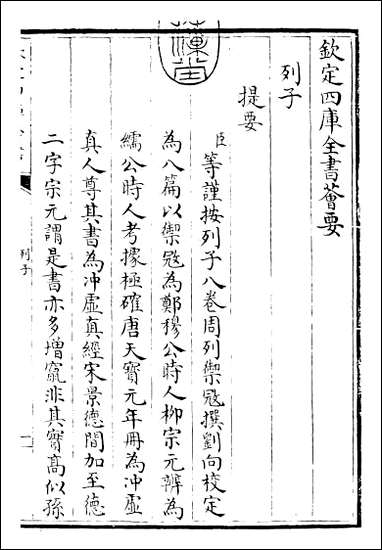 欽定四庫全書薈要
列子
提要
臣等謹按列子八卷周列禦冦撰劉向校定
為八篇以禦冦為鄭穆公時人柳宗元辨為
繻公時人考據極確唐天寳元年冊為冲虛
真人尊其書為冲虛真經宋景德間加至德
二字宗元謂是書亦多増竄非其實髙似孫
列子
一